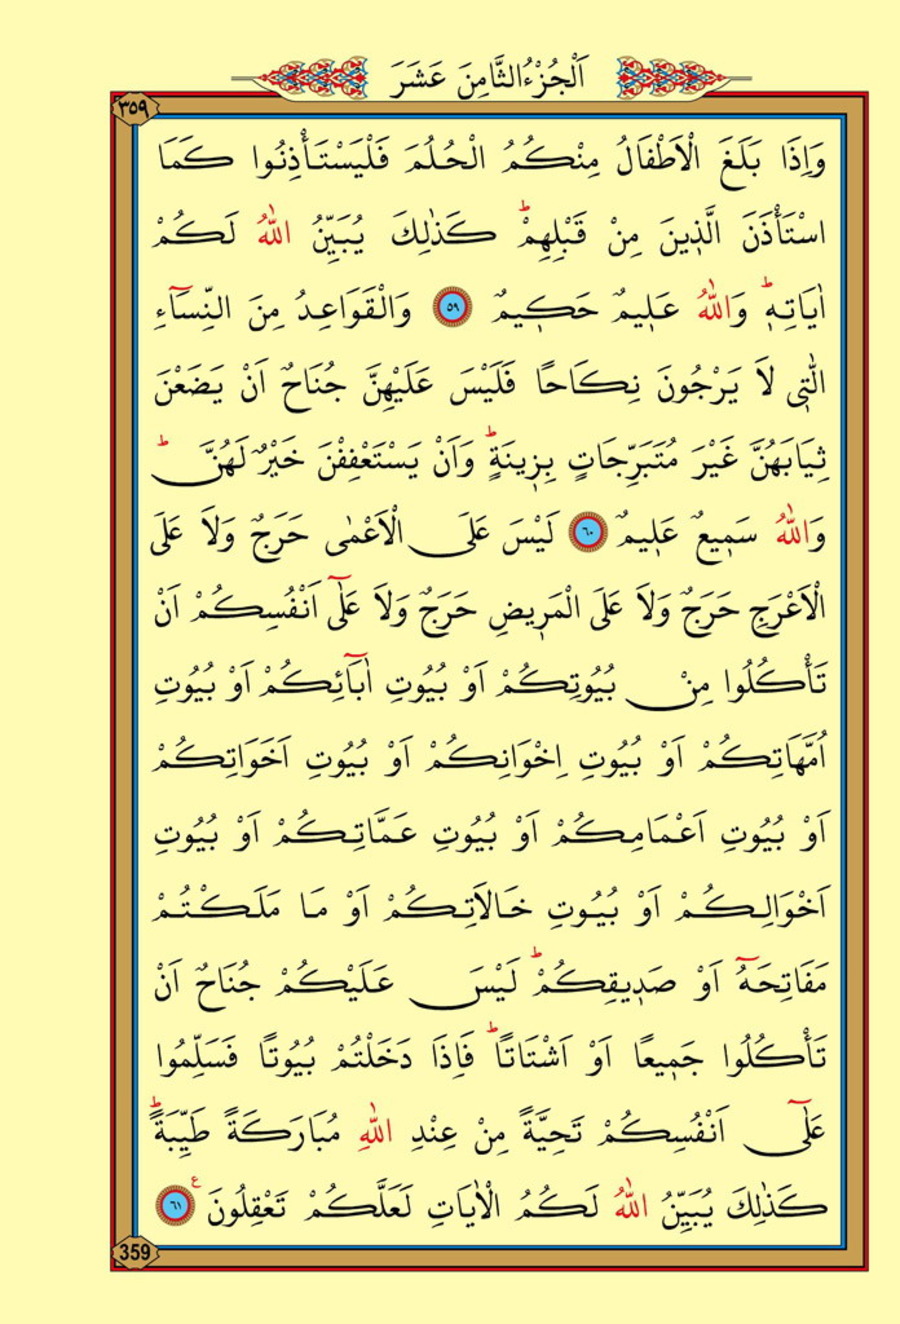 اَلْجُزْءُ الثَّامِنَ عَشَرَ
٣٥٩
وَاِذَا بَلَغَ الْاَطْفَالُ مِنْكُمُ الْحُلُمَ فَلْيَسْتَأْذِنُوا كَمَا
اسْتَأْذَنَ الَّذ۪ينَ مِنْ قَبْلِهِمْۜ كَذٰلِكَ يُبَيِّنُ اللّٰهُ لَكُمْ
اٰيَاتِه۪ۜ وَاللّٰهُ عَل۪يمٌ حَك۪يمٌ ﴿٥٩﴾ وَالْقَوَاعِدُ مِنَ النِّسَٓاءِ
الّٰت۪ي لَا يَرْجُونَ نِكَاحًا فَلَيْسَ عَلَيْهِنَّ جُنَاحٌ اَنْ يَضَعْنَ
ثِيَابَهُنَّ غَيْرَ مُتَبَرِّجَاتٍ بِز۪ينَةٍۜ وَاَنْ يَسْتَعْفِفْنَ خَيْرٌ لَهُنَّۜ
وَاللّٰهُ سَم۪يعٌ عَل۪يمٌ ﴿٦٠﴾ لَيْسَ عَلَى الْاَعْمٰى حَرَجٌ وَلَا عَلَى
الْاَعْرَجِ حَرَجٌ وَلَا عَلَى الْمَر۪يضِ حَرَجٌ وَلَا عَلٰٓى اَنْفُسِكُمْ اَنْ
تَأْكُلُوا مِنْ بُيُوتِكُمْ اَوْ بُيُوتِ اٰبَٓائِكُمْ اَوْ بُيُوتِ
اُمَّهَاتِكُمْ اَوْ بُيُوتِ اِخْوَانِكُمْ اَوْ بُيُوتِ اَخَوَاتِكُمْ
اَوْ بُيُوتِ اَعْمَامِكُمْ اَوْ بُيُوتِ عَمَّاتِكُمْ اَوْ بُيُوتِ
اَخْوَالِكُمْ اَوْ بُيُوتِ خَالَاتِكُمْ اَوْ مَا مَلَكْتُمْ
مَفَاتِحَهُٓ اَوْ صَد۪يقِكُمْۜ لَيْسَ عَلَيْكُمْ جُنَاحٌ اَنْ
تَأْكُلُوا جَم۪يعًا اَوْ اَشْتَاتًاۜ فَاِذَا دَخَلْتُمْ بُيُوتًا فَسَلِّمُوا
عَلٰٓى اَنْفُسِكُمْ تَحِيَّةً مِنْ عِنْدِ اللّٰهِ مُبَارَكَةً طَيِّبَةًۜ
كَذٰلِكَ يُبَيِّنُ اللّٰهُ لَكُمُ الْاٰيَاتِ لَعَلَّكُمْ تَعْقِلُونَ ع ﴿٦١﴾
359